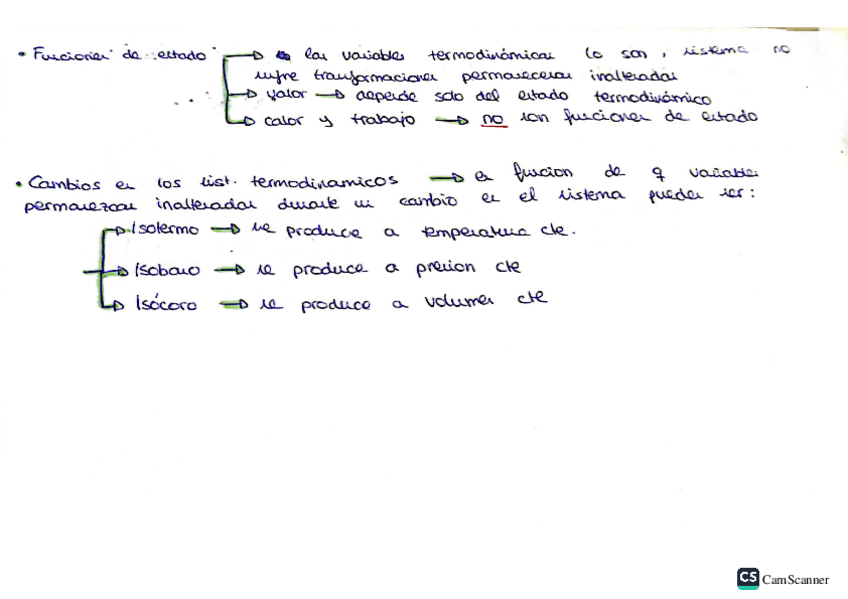 • Funciones de estado → las variables termodinámicas lo son, sistema no
sufre transformaciones permanecerán inalteradas
→ valor → depende solo del estado termodinámico
→ calor y trabajo → no son funciones de estado
• Cambios en los sist. termodinamicos → en funcion de q variables
permanezcan inalteradas durante un cambio en el sistema pueden ser:
→ Isotermo → se produce a temperatura cte.
→ Isobaro → se produce a presion cte
→ Isócoro → se produce a volumen cte
CS CamScanner